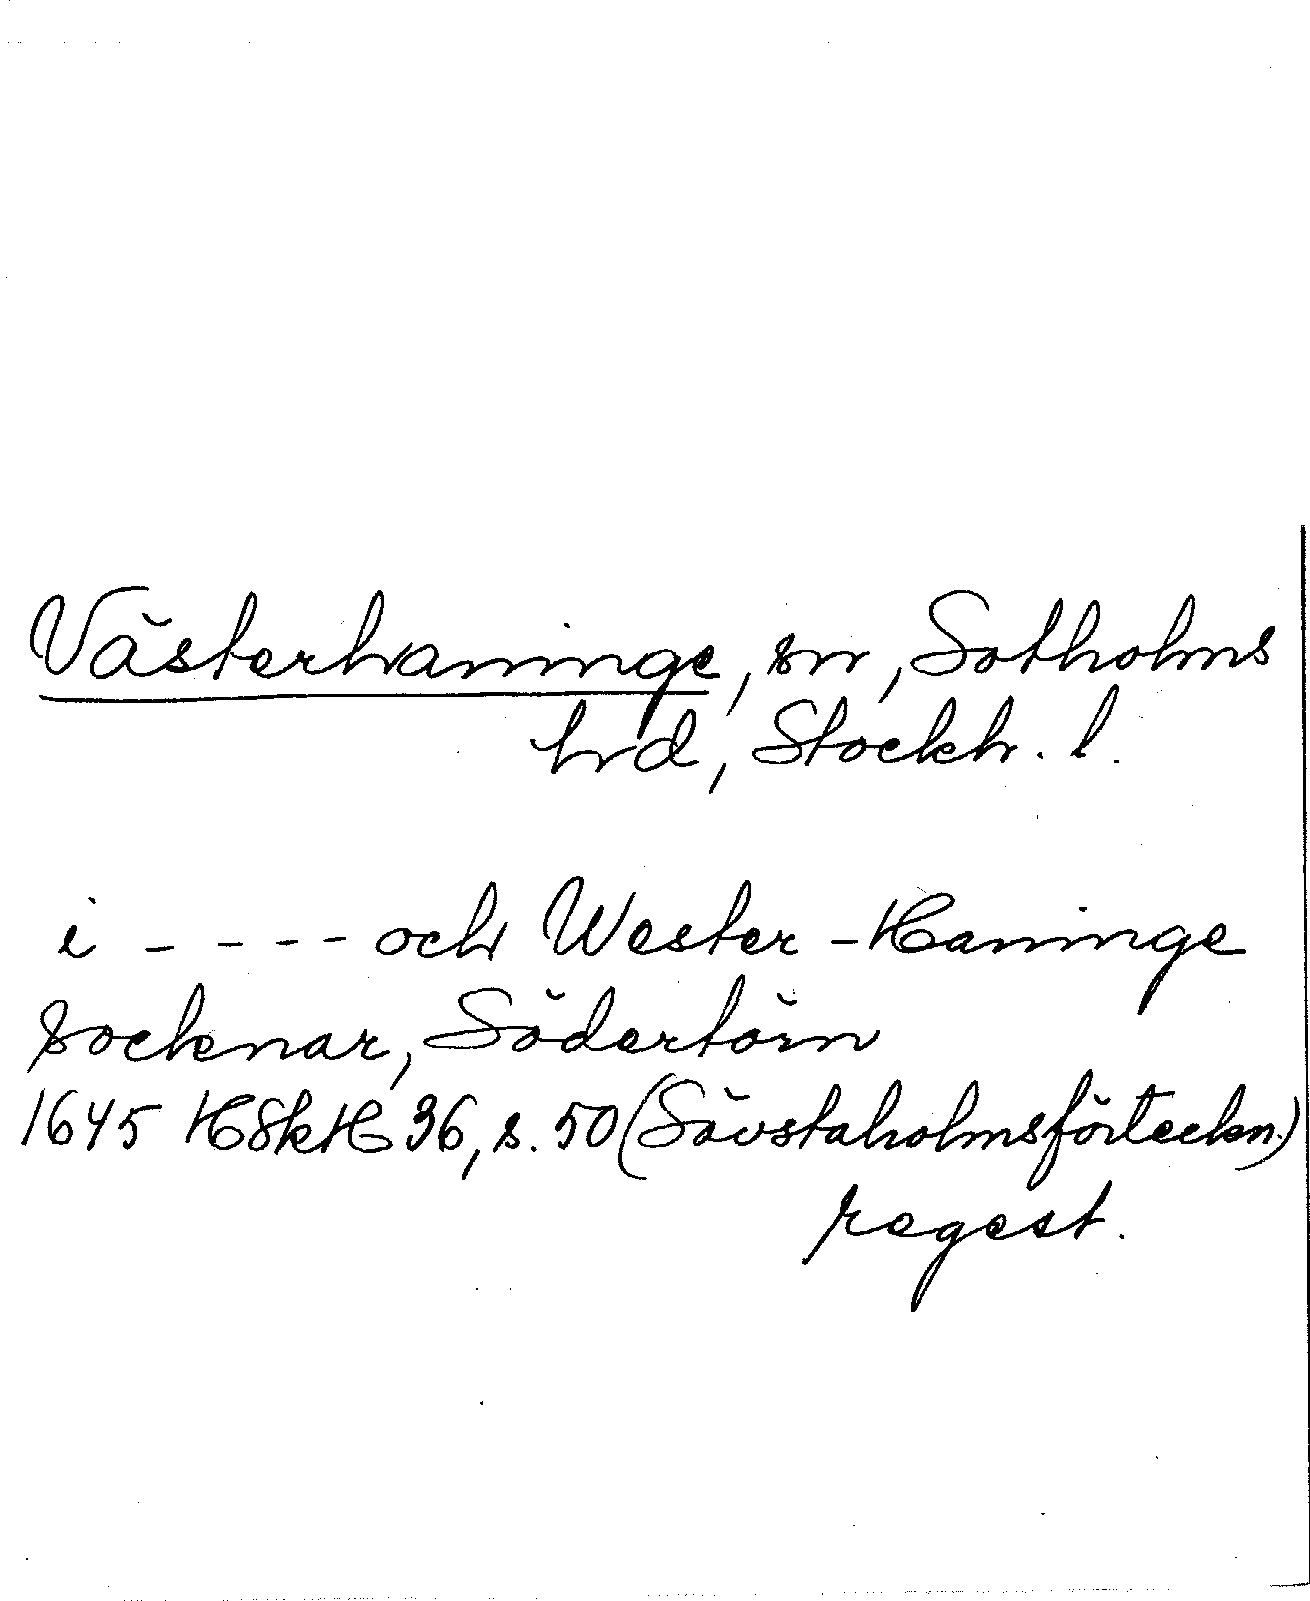 Västerhaninge, sn, Sotholms
hrd, Stockh. l.
i - - - - - och Wester-Haninge
socknar, Södertörn
1645 HSkH 36, s. 50 (Sävstaholmsförteckn.)
regest.